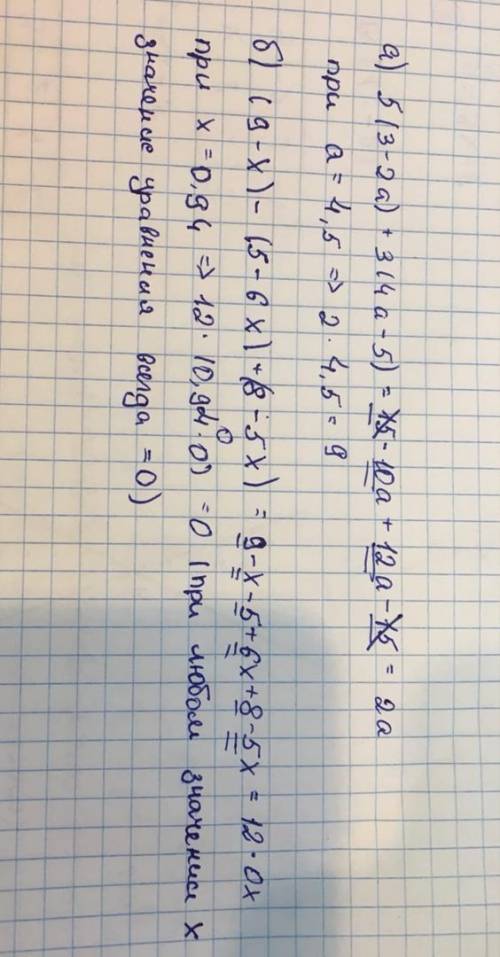 а) 5(3-2a)+3(4a-5)=15-10a+12a-15=2a
при a=4,5 => 2·4,5=9
б) (9-x)-(5-6x)+(8-5x)=9-x-5+6x+8-5x=12·0x
при x=0,94 => 12·(0,94·0)=0 (при любом значении x
значение уравнения всегда =0)